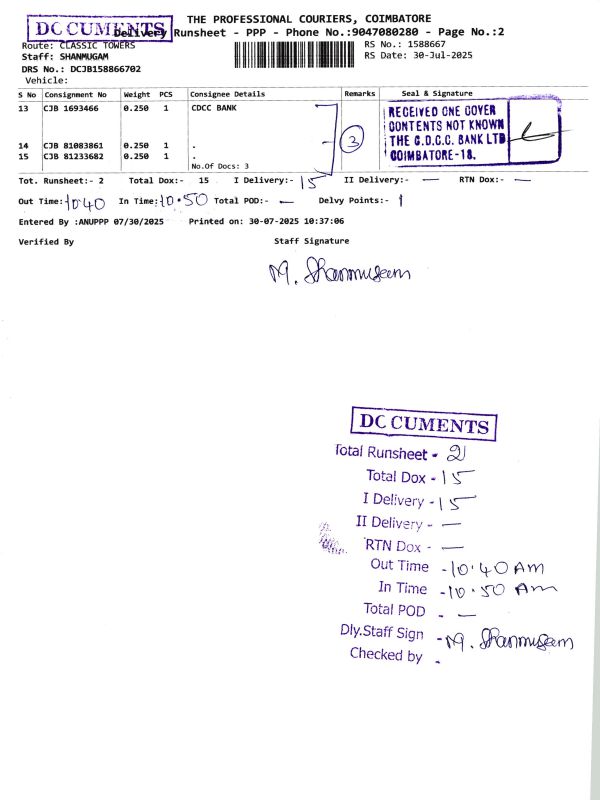 THE PROFESSIONAL COURIERS, COIMBATORE
DOCUMENTS
Delivery Runsheet - PPP - Phone No.:9047080280 - Page No.:2
Route: CLASSIC TOWERS
RS No.: 1588667
Staff: SHANMUGAM
RS Date: 30-Jul-2025
DRS No.: DCJB158866702
Vehicle:
S No Consignment No Weight PCS Consignee Details Remarks Seal & Signature
13 CJB 1693466 0.250 1 CDCC BANK
14 CJB 81083861 0.250 1 .
15 CJB 81233682 0.250 1 .
3
No.Of Docs: 3
RECEIVED ONE COVER
CONTENTS NOT KNOWN
THE C.D.C.C. BANK LTD
COIMBATORE-18.
Tot. Runsheet:- 2 Total Dox:- 15 I Delivery:- 15 II Delivery:- — RTN Dox:- —
Out Time: 10.40 In Time: 10.50 Total POD:- — Delvy Points:- 1
Entered By :ANUPPP 07/30/2025 Printed on: 30-07-2025 10:37:06
Verified By Staff Signature
M. Shanmugam
DOCUMENTS
Total Runsheet - 2
Total Dox - 15
I Delivery - 15
II Delivery - —
RTN Dox - —
Out Time - 10.40 AM
In Time - 10.50 Am
Total POD - —
Dly.Staff Sign - M. Shanmugam
Checked by -